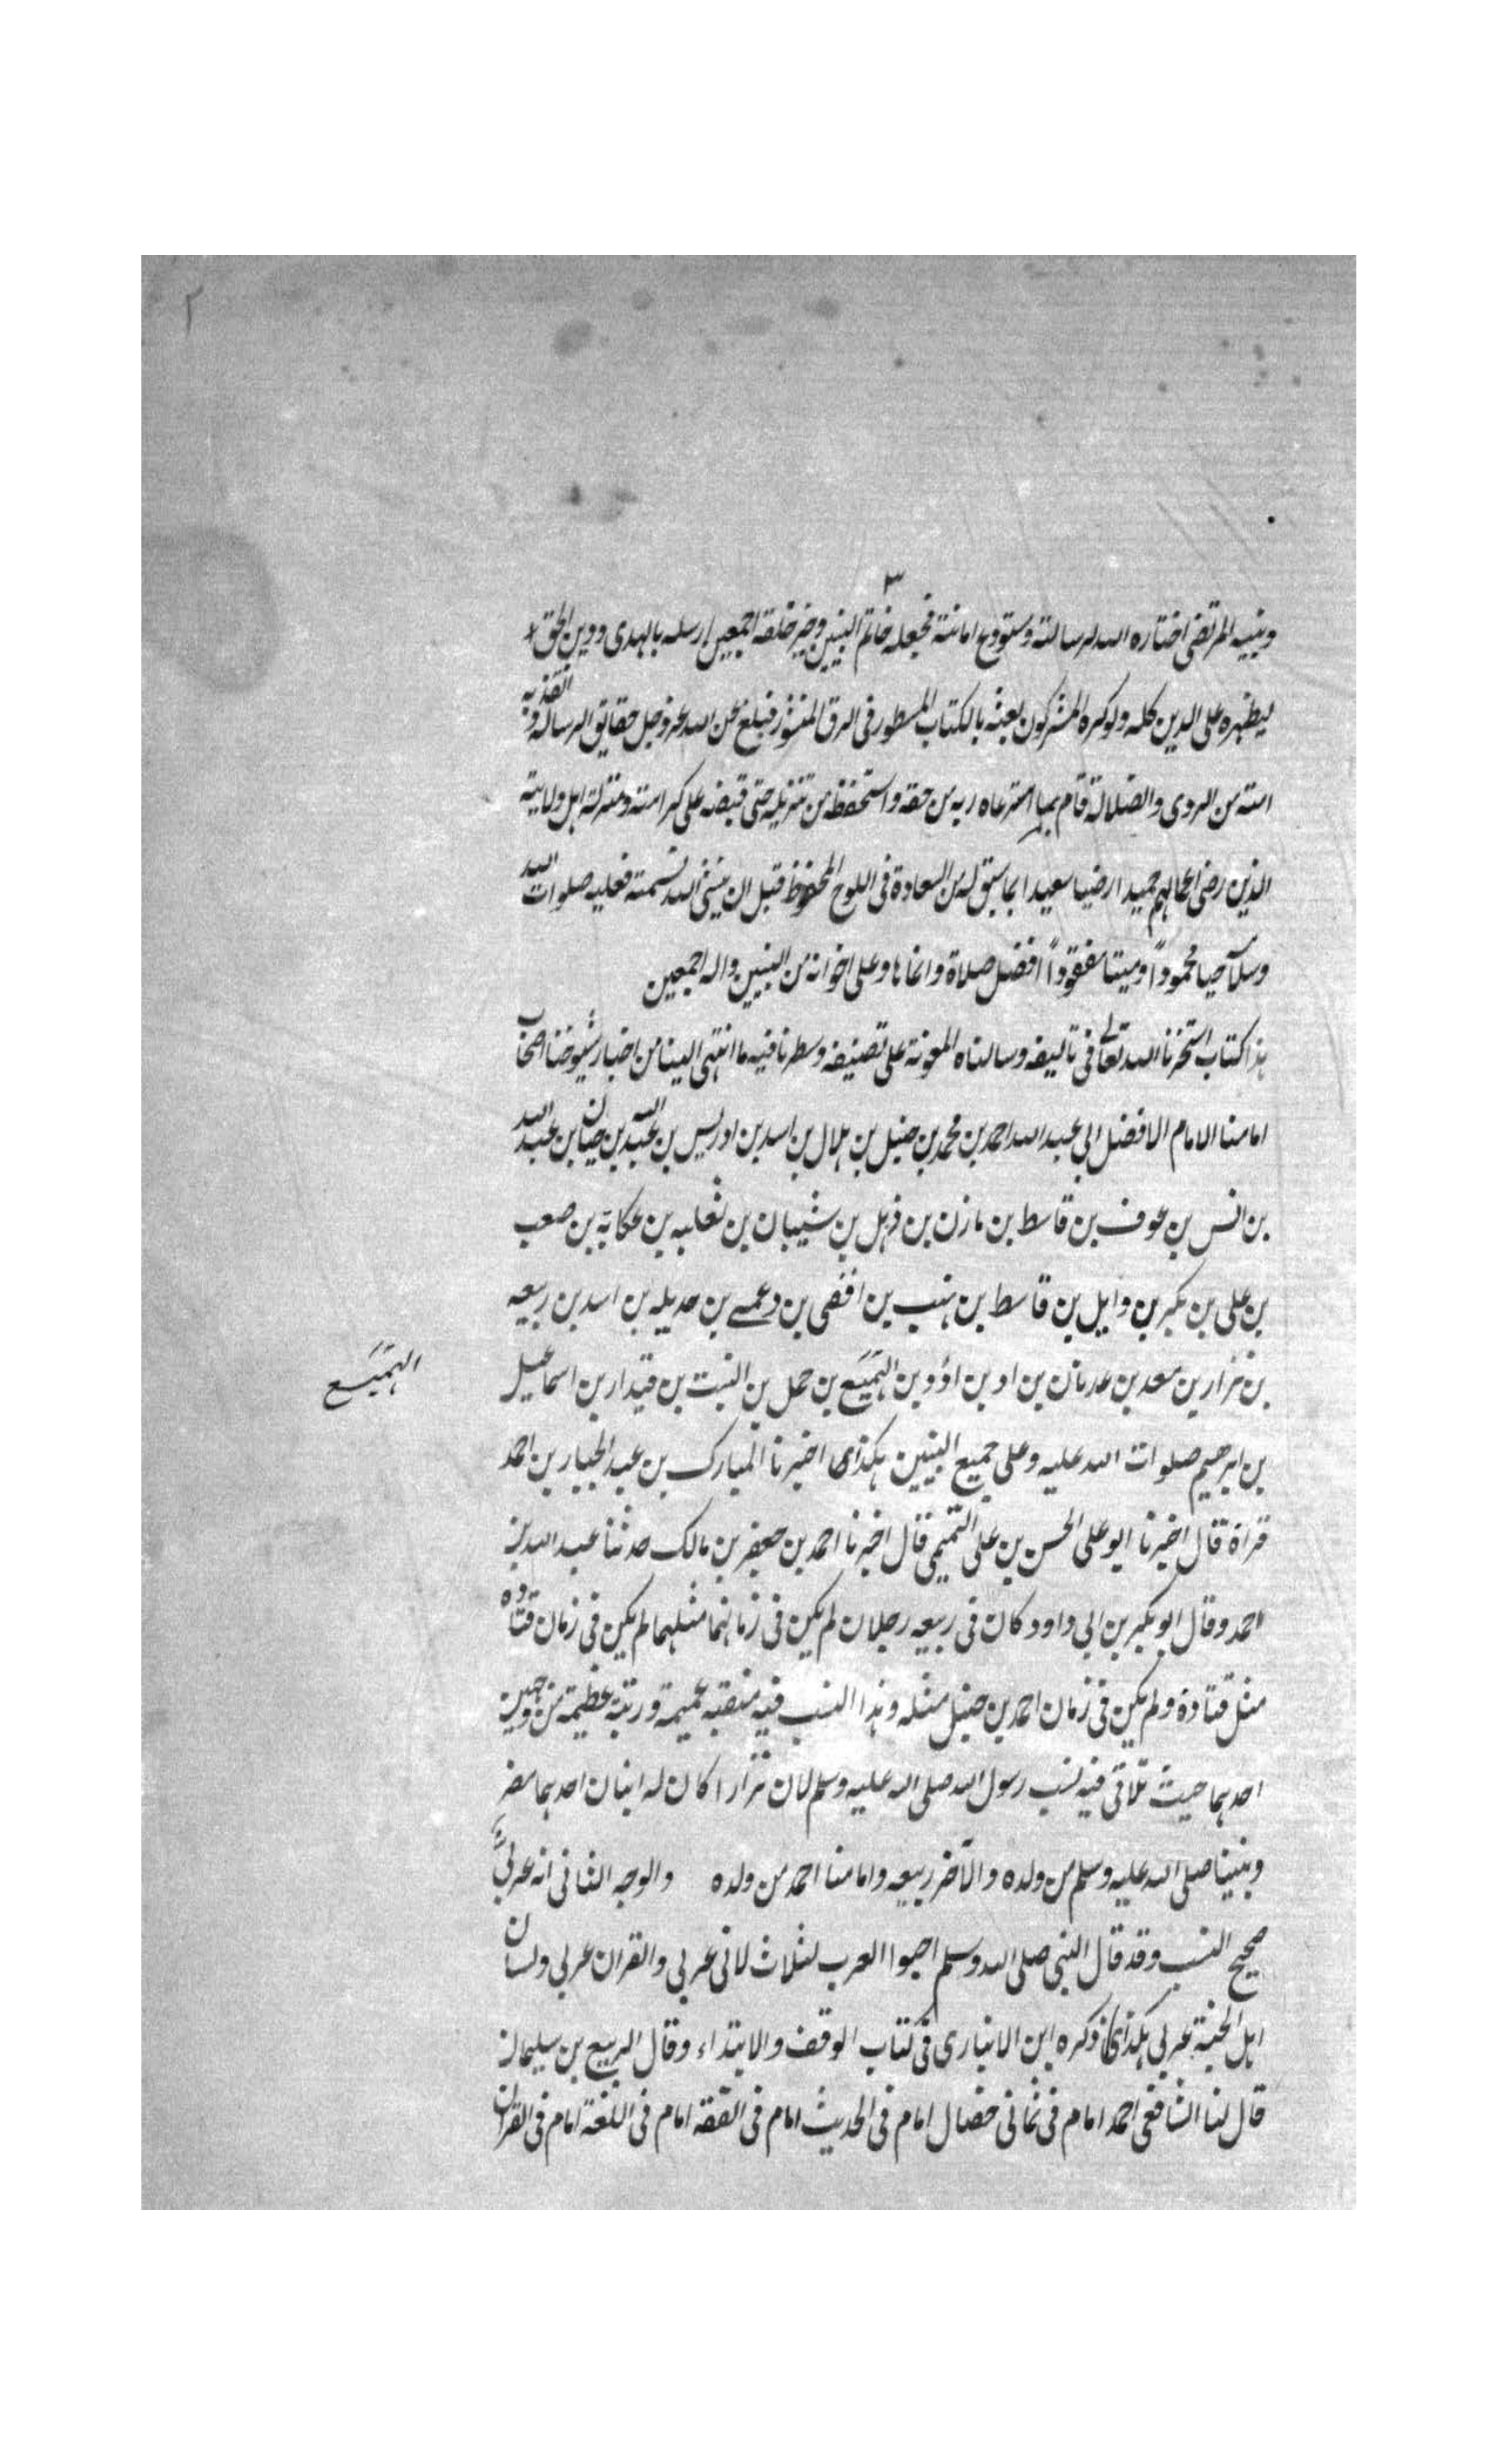 ٢
٣
ونبيه المرتضى اختاره الله لرسالته ومستودع امانته فجعله خاتم النبيين وخير خلقه اجمعين ارسله بالهدى ودين الحق
ليظهره على الدين كله ولو كره المشركون بعثه بالكتاب المسطور فى الرق المنشور فبلغ عن الله عز وجل حقايق الرسالة و انقذ به
امته من الردى والضلالة قام بما استرعاه ربه من حقه واستحفظ من تنزيله حتى قبضه على كرامته ومنزلة اهل ولايته
الذين رضى اعمالهم حميدا رضيا سعيدا بما سبق له من السعادة فى اللوح المحفوظ قبل ان ينشئ الله نسمته فعليه صلوات الله
وسلامه حيا محموداً وميتا مفقوداً افضل صلاة وانماها وعلى اخوانه من النبيين واله اجمعين
هذا كتاب استخرنا الله تعالى فى تاليفه وسالناه المعونة على تصنيفه وسطرنا فيه ما انتهى الينا من اخبار شيوخنا اصحاب
امامنا الامام الافضل ابى عبد الله احمد بن محمد بن حنبل بن هلال بن اسد بن ادريس بن عبد الله بن حيان بن عبد الله
بن انس بن عوف بن قاسط بن مازن بن ذهل بن شيبان بن ثعلبه بن عكابة بن صعب
بن على بن بكر بن وايل بن قاسط بن هنب بن افصى بن دعمى بن جديله بن اسد بن ربيعه
بن نزار بن معد بن عدنان بن اد بن ادد بن الهَمَيسَع بن حمل بن النبت بن قيدار بن اسماعيل
الهَمَيسَع
بن ابرهيم صلوات الله عليه وعلى جميع النبيين هكذى اخبرنا المبارك بن عبد الجبار بن احمد
قراة قال اخبرنا ابو على الحسن بن على التميمى قال اخبرنا احمد بن جعفر بن مالك حدثنا عبد الله بن
احمد وقال ابو بكر بن ابى داود كان فى ربيعه رجلان لم يكن فى زمانهما مثلهما لم يكن فى زمان قتاده
مثل قتادة ولم يكن فى زمان احمد بن حنبل مثله وهذا النسب فيه منقبه عميمة ورتبة عظيمة من وجهين
احدهما حيث تلاقى فيه نسب رسول الله صلى الله عليه وسلم لان نزارا كان له ابنان احدهما مضر
ونبينا صلى الله عليه وسلم من ولده والآخر ربيعه وامامنا احمد من ولده والوجه الثانى انه عربىٌّ
صحيح النسب وقد قال النبى صلى الله وسلم احبوا العرب لثلاث لانى عربى والقران عربى ولسان
اهل الجنة عربى هكذى ذكره ابن الانبارى فى كتاب الوقف والابتداء وقال الربيع بن سليمان
قال لنا الشافعى احمد امام فى ثمانى خصال امام فى الحديث امام فى الفقه امام فى اللغة امام فى القران